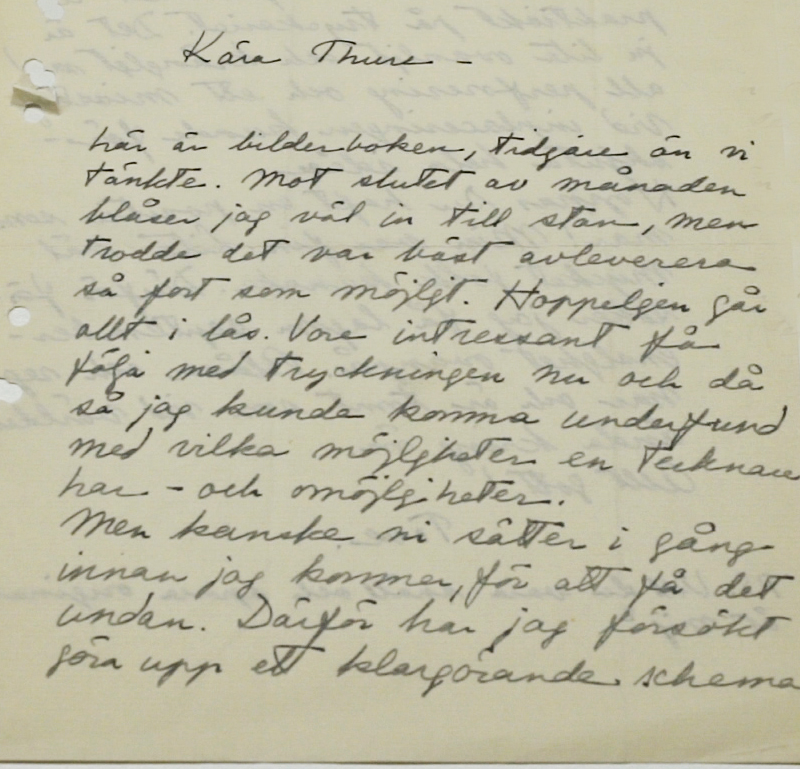 Kära Thure –
här är bilderboken, tidgare än vi
tänkte. Mot slutet av månaden
blåser jag väl in till stan, men
trodde det var bäst avleverera
så fort som möjligt. Hoppeligen går
allt i lås. Vore intressant få
följa med tryckningen nu och då
så jag kunde komma underfund
med vilka möjligheter en tecknare
har – och omöjligheter.
Men kanske ni sätter i gång
innan jag kommer, för att få det
undan. Därför har jag försökt
göra upp ett klargörande schema